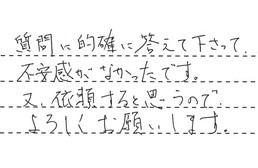 質問に的確に答えて下さって、
不安感がなかったです。
又、依頼すると思うので
よろしくお願いします。